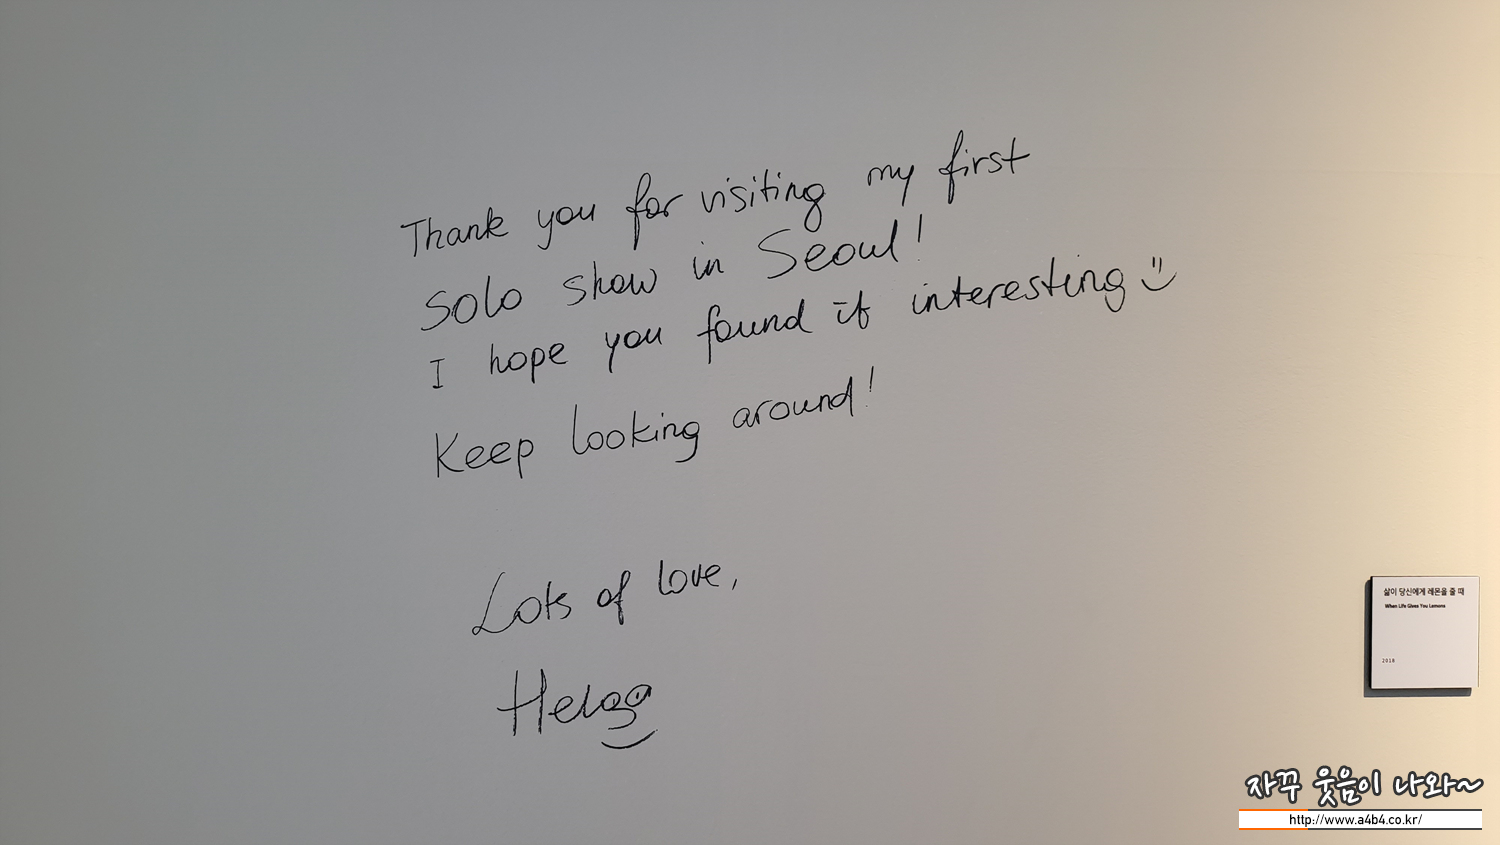 Thank you for visiting my first
solo show in Seoul!
I hope you found it interesting
Keep looking around!
Lots of love,
Helga
삶이 당신에게 레몬을 줄 때
When Life Gives You Lemons
2018
자꾸 웃음이 나와~
http://www.a4b4.co.kr/